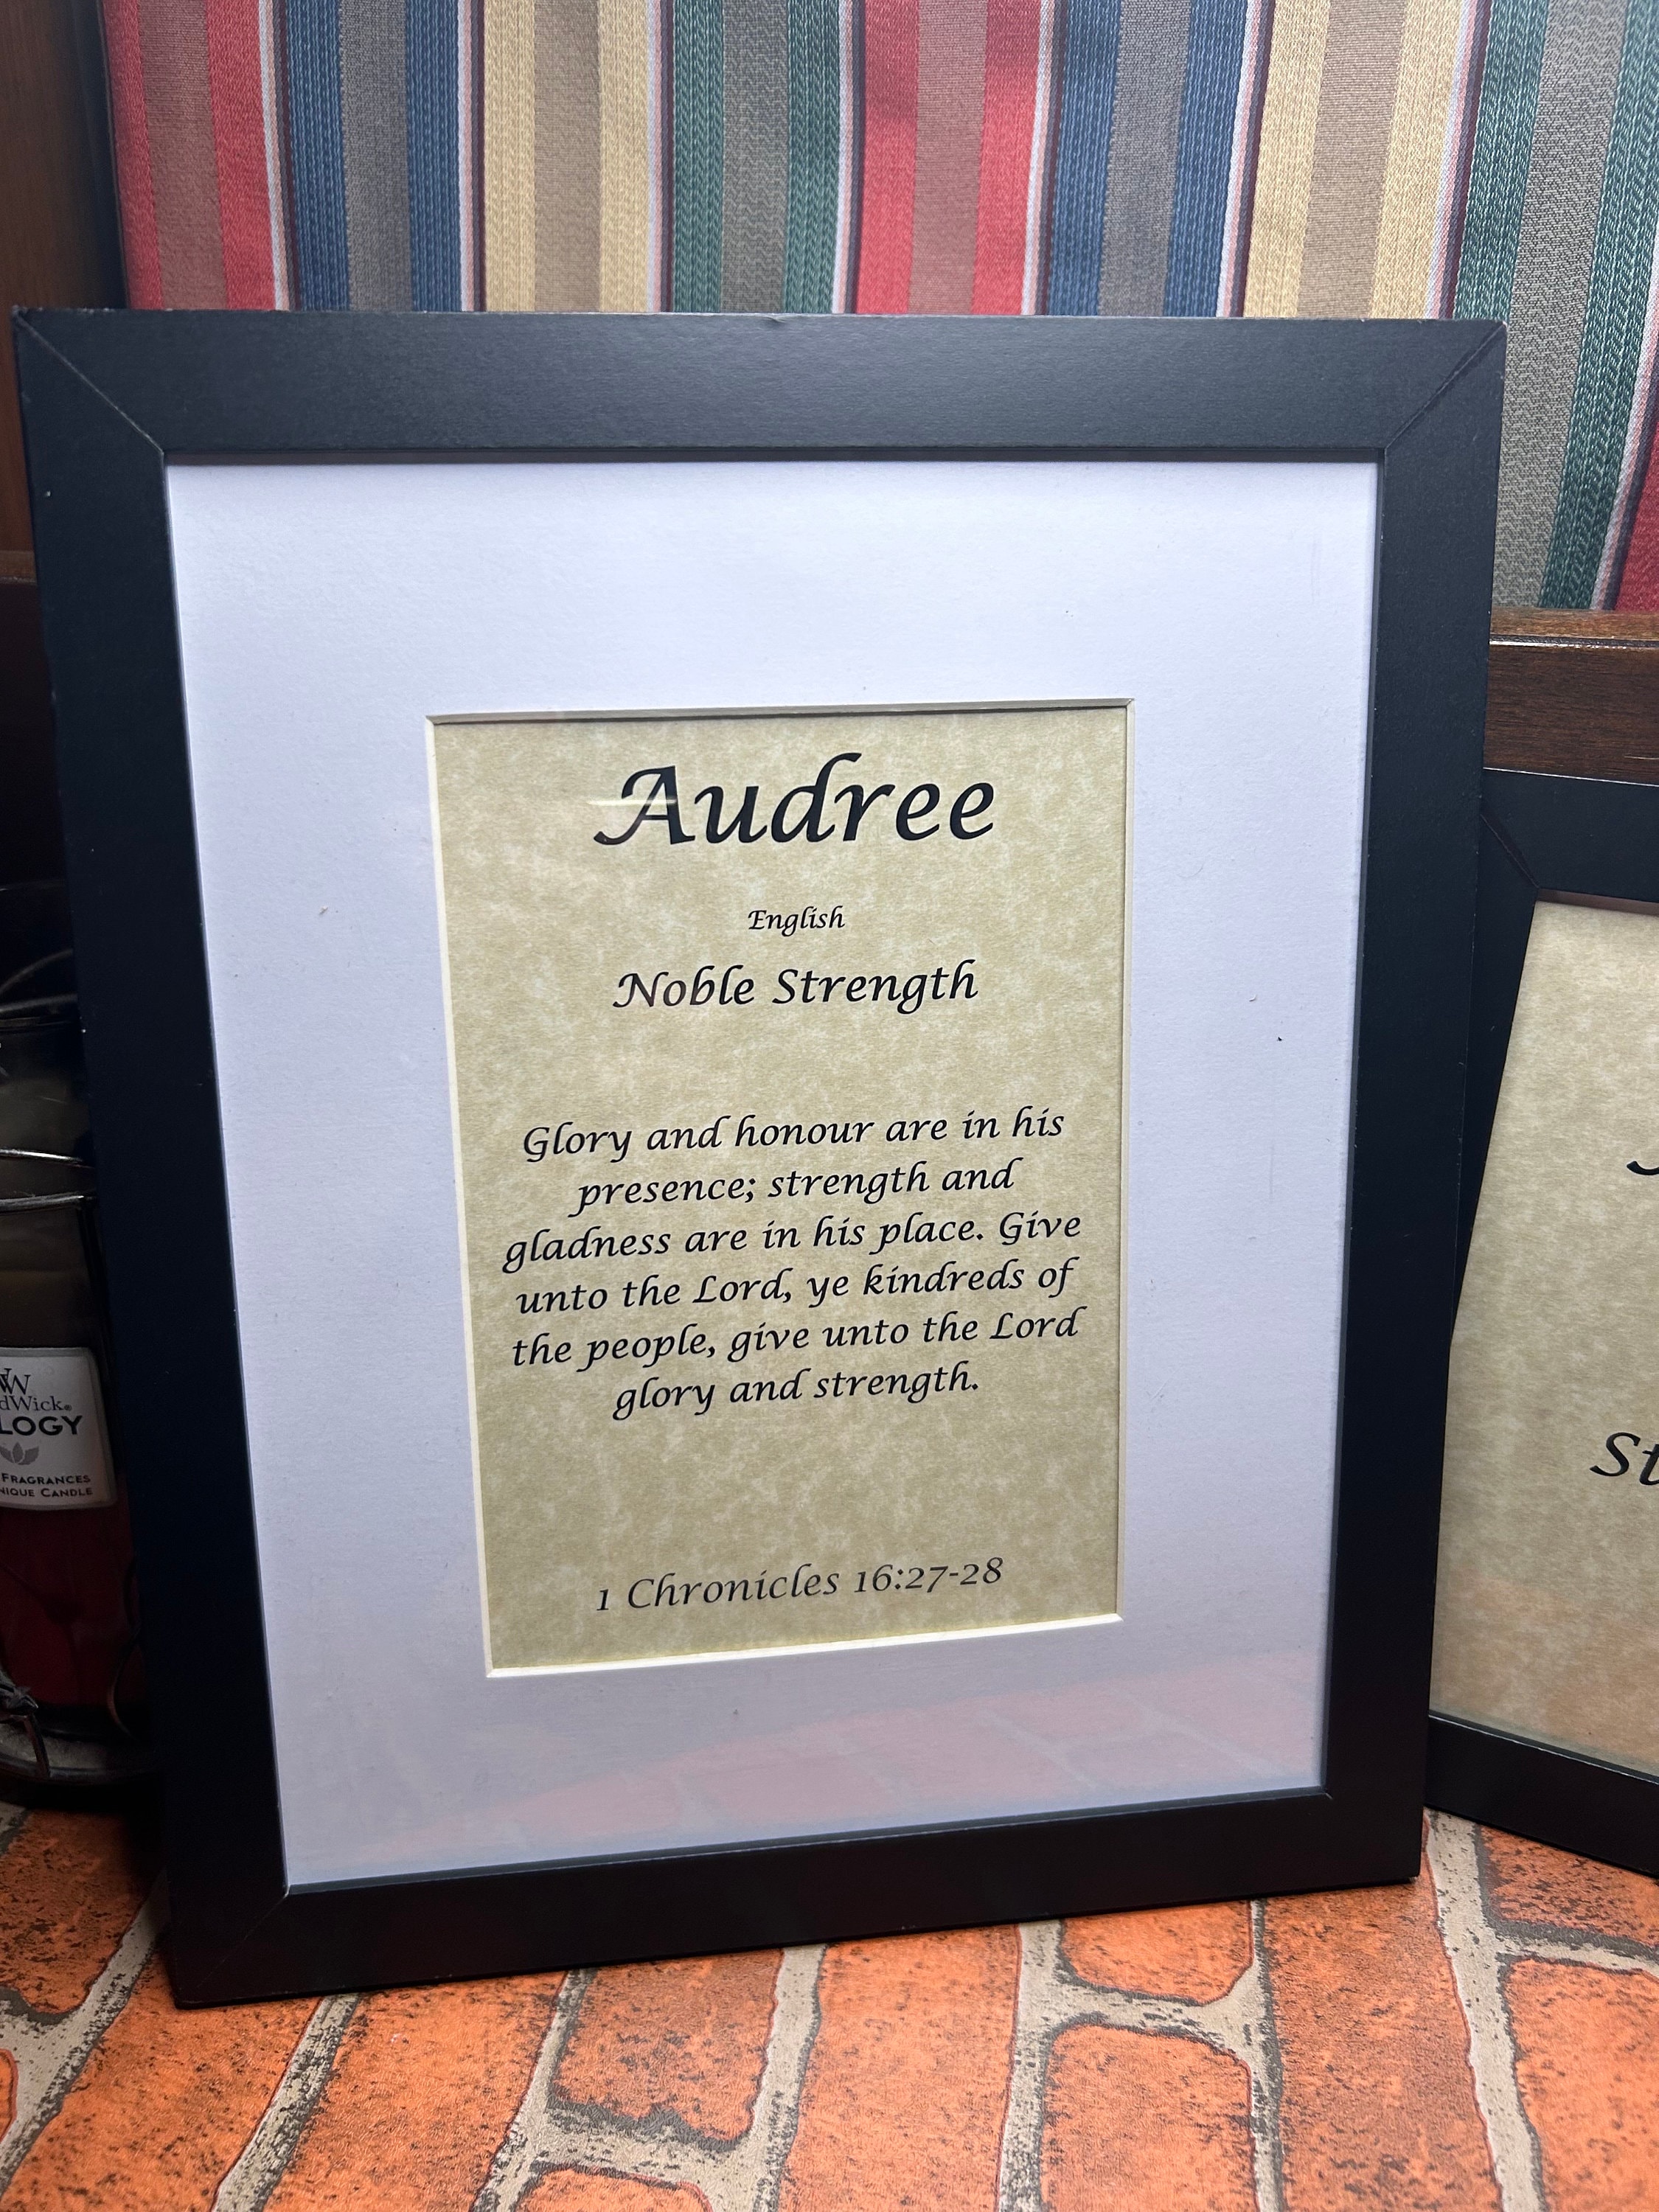 Audree
English
Noble Strength
Glory and honour are in his
presence; strength and
gladness are in his place. Give
unto the Lord, ye kindreds of
the people, give unto the Lord
glory and strength.
1 Chronicles 16:27-28
W
dWick®
LOGY
FRAGRANCES
NIQUE CANDLE
St